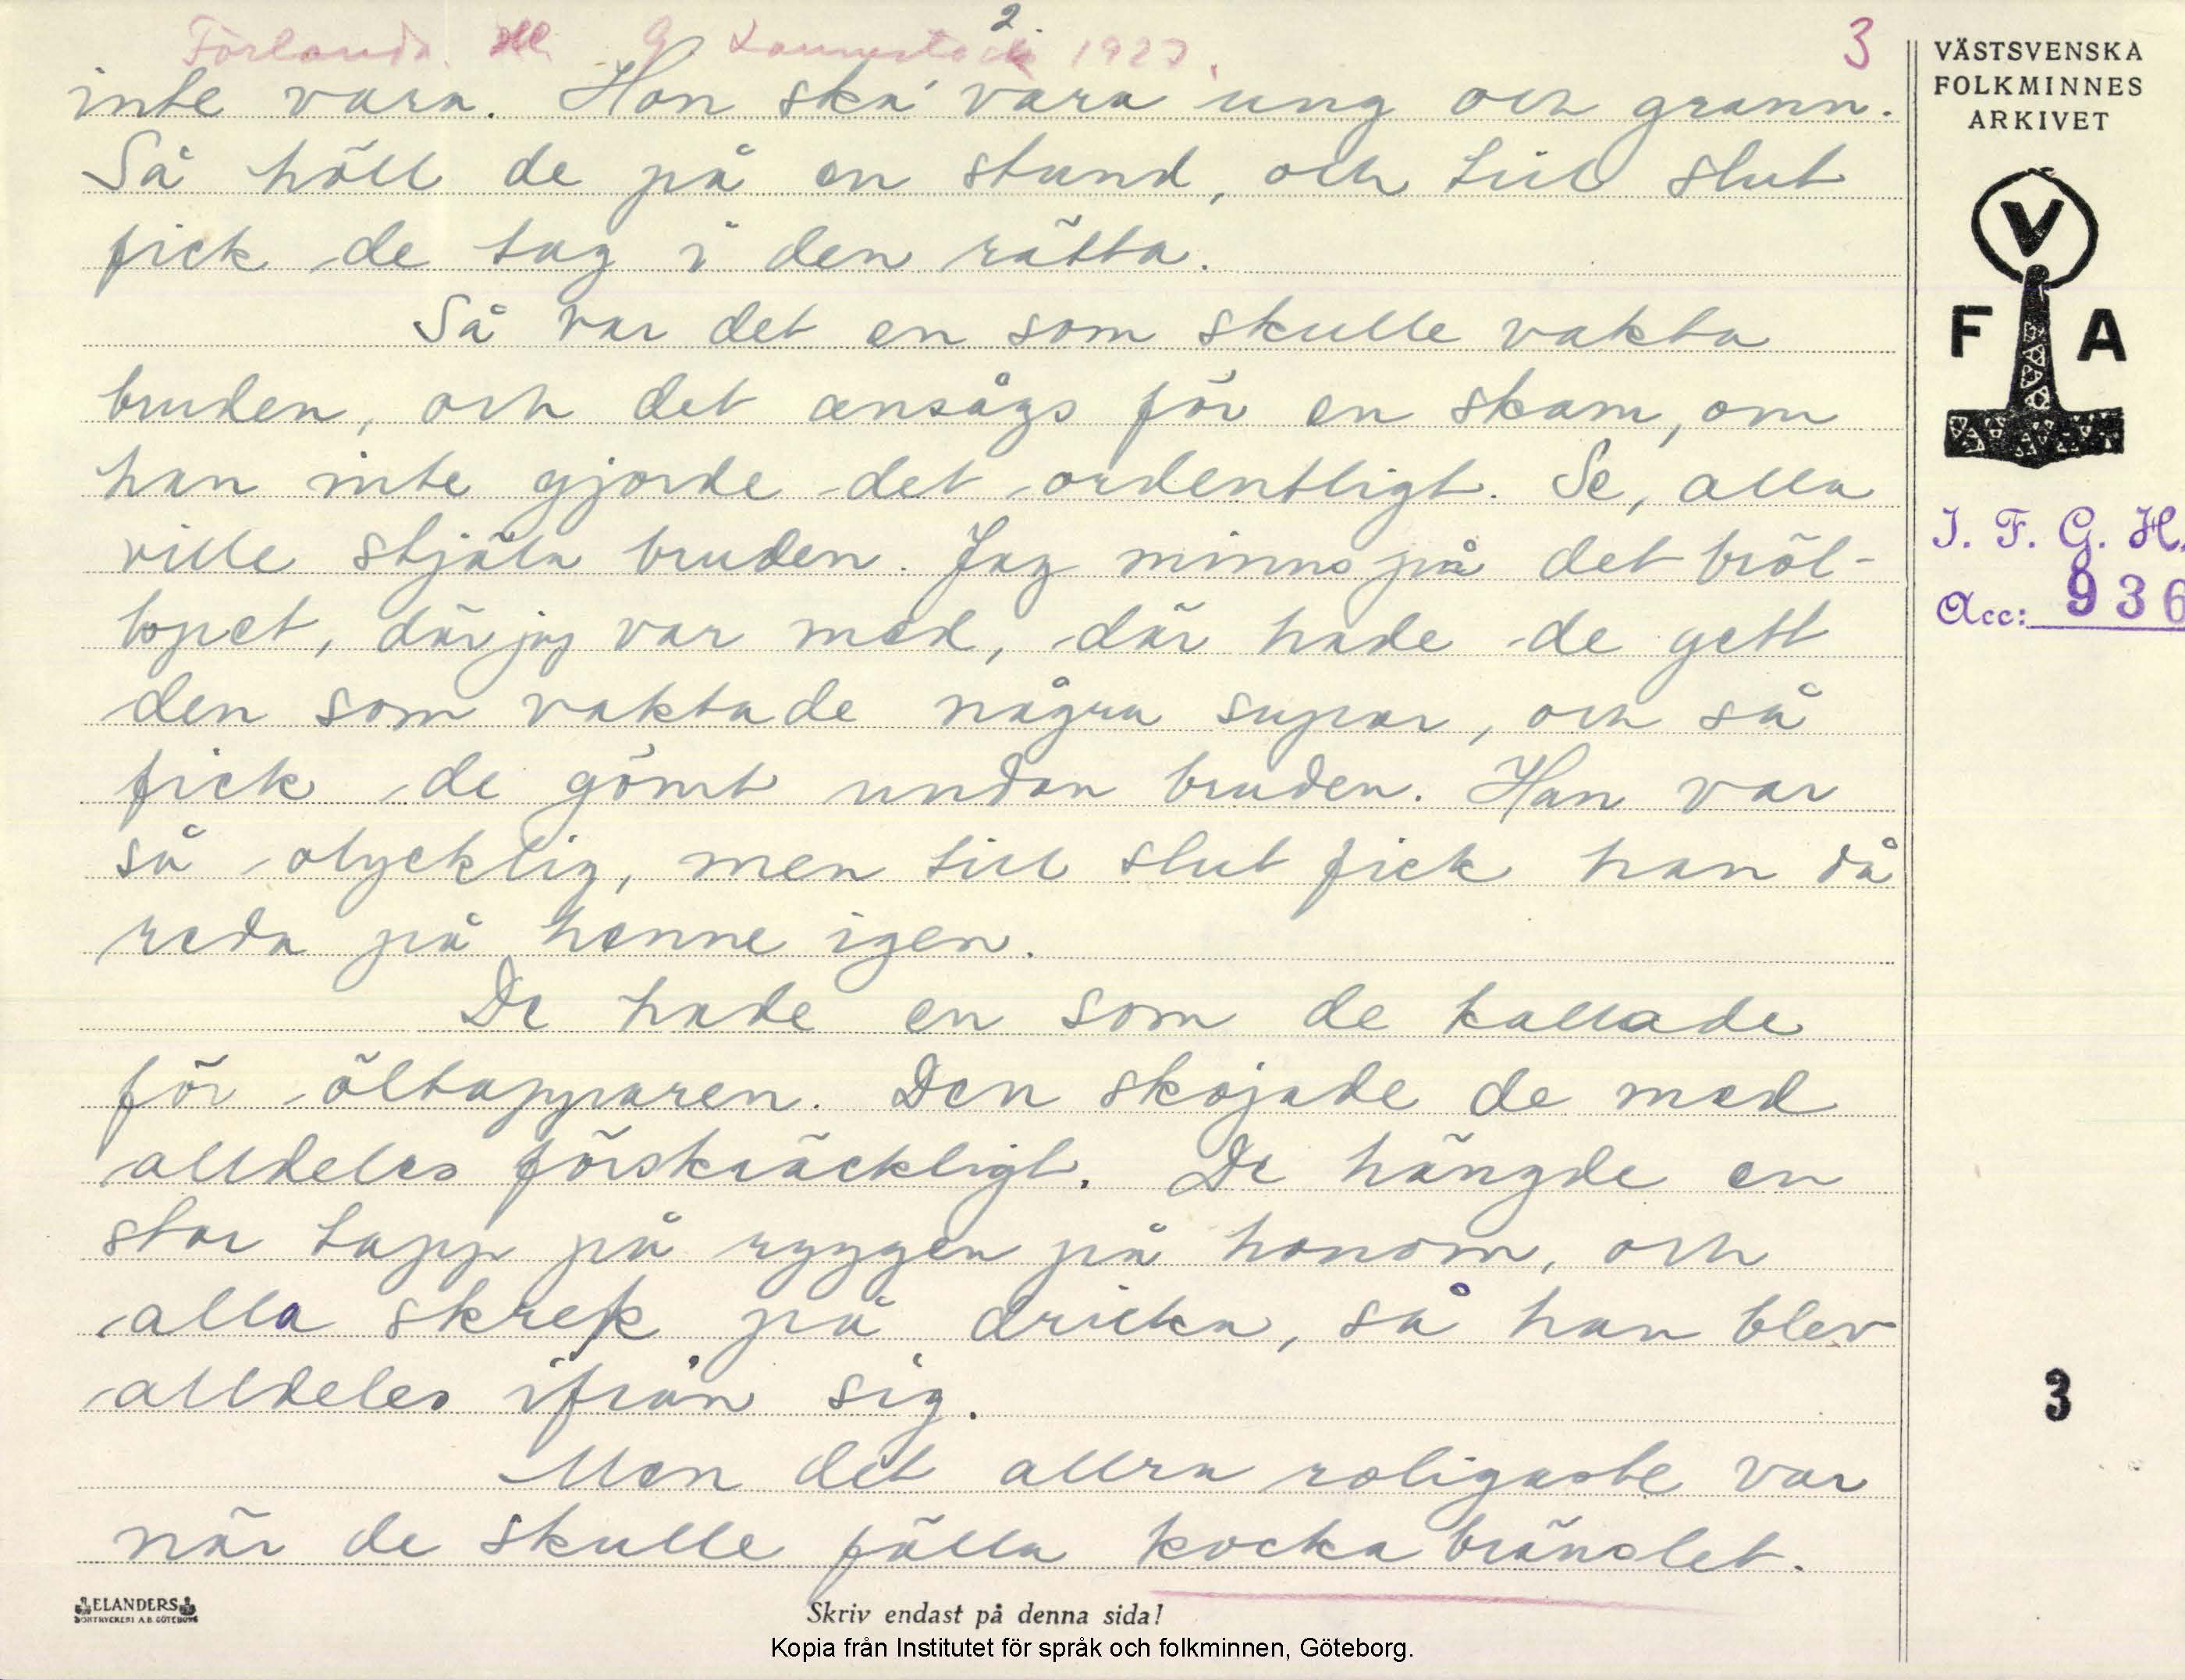 2.
Förlanda Hl. G 1927.
3
inte vara. Hon ska' vara ung och grann.
Så höll de på en stund, och till slut
fick de tag i den rätta.
Så var det en som skulle vakta
bruden, och det ansågs för en skam, om
han inte gjorde det ordentligt. Se, alla
ville stjäla bruden. Jag minns på det bröl-
lopet, där jag var med, där hade de gett
den som vaktade några supar, och så
fick de gömt undan bruden. Han var
så olycklig, men till slut fick han då
reda på henne igen.
De hade en som de kallade
för öltapparen. Den skojade de med
alldeles förskräckligt. De hängde en
stor tapp på ryggen på honom, och
alla skrek på dricka, så han blev
alldeles ifrån sig.
Men det allra roligaste var
när de skulle fälla kockabränslet.
VÄSTSVENSKA
FOLKMINNES
ARKIVET
V
F A
I. F. G. H.
Acc: 936
3
ELANDERS
BOKTRYCKERI A.B. GÖTEBORG
Skriv endast på denna sida!
Kopia från Institutet för språk och folkminnen, Göteborg.